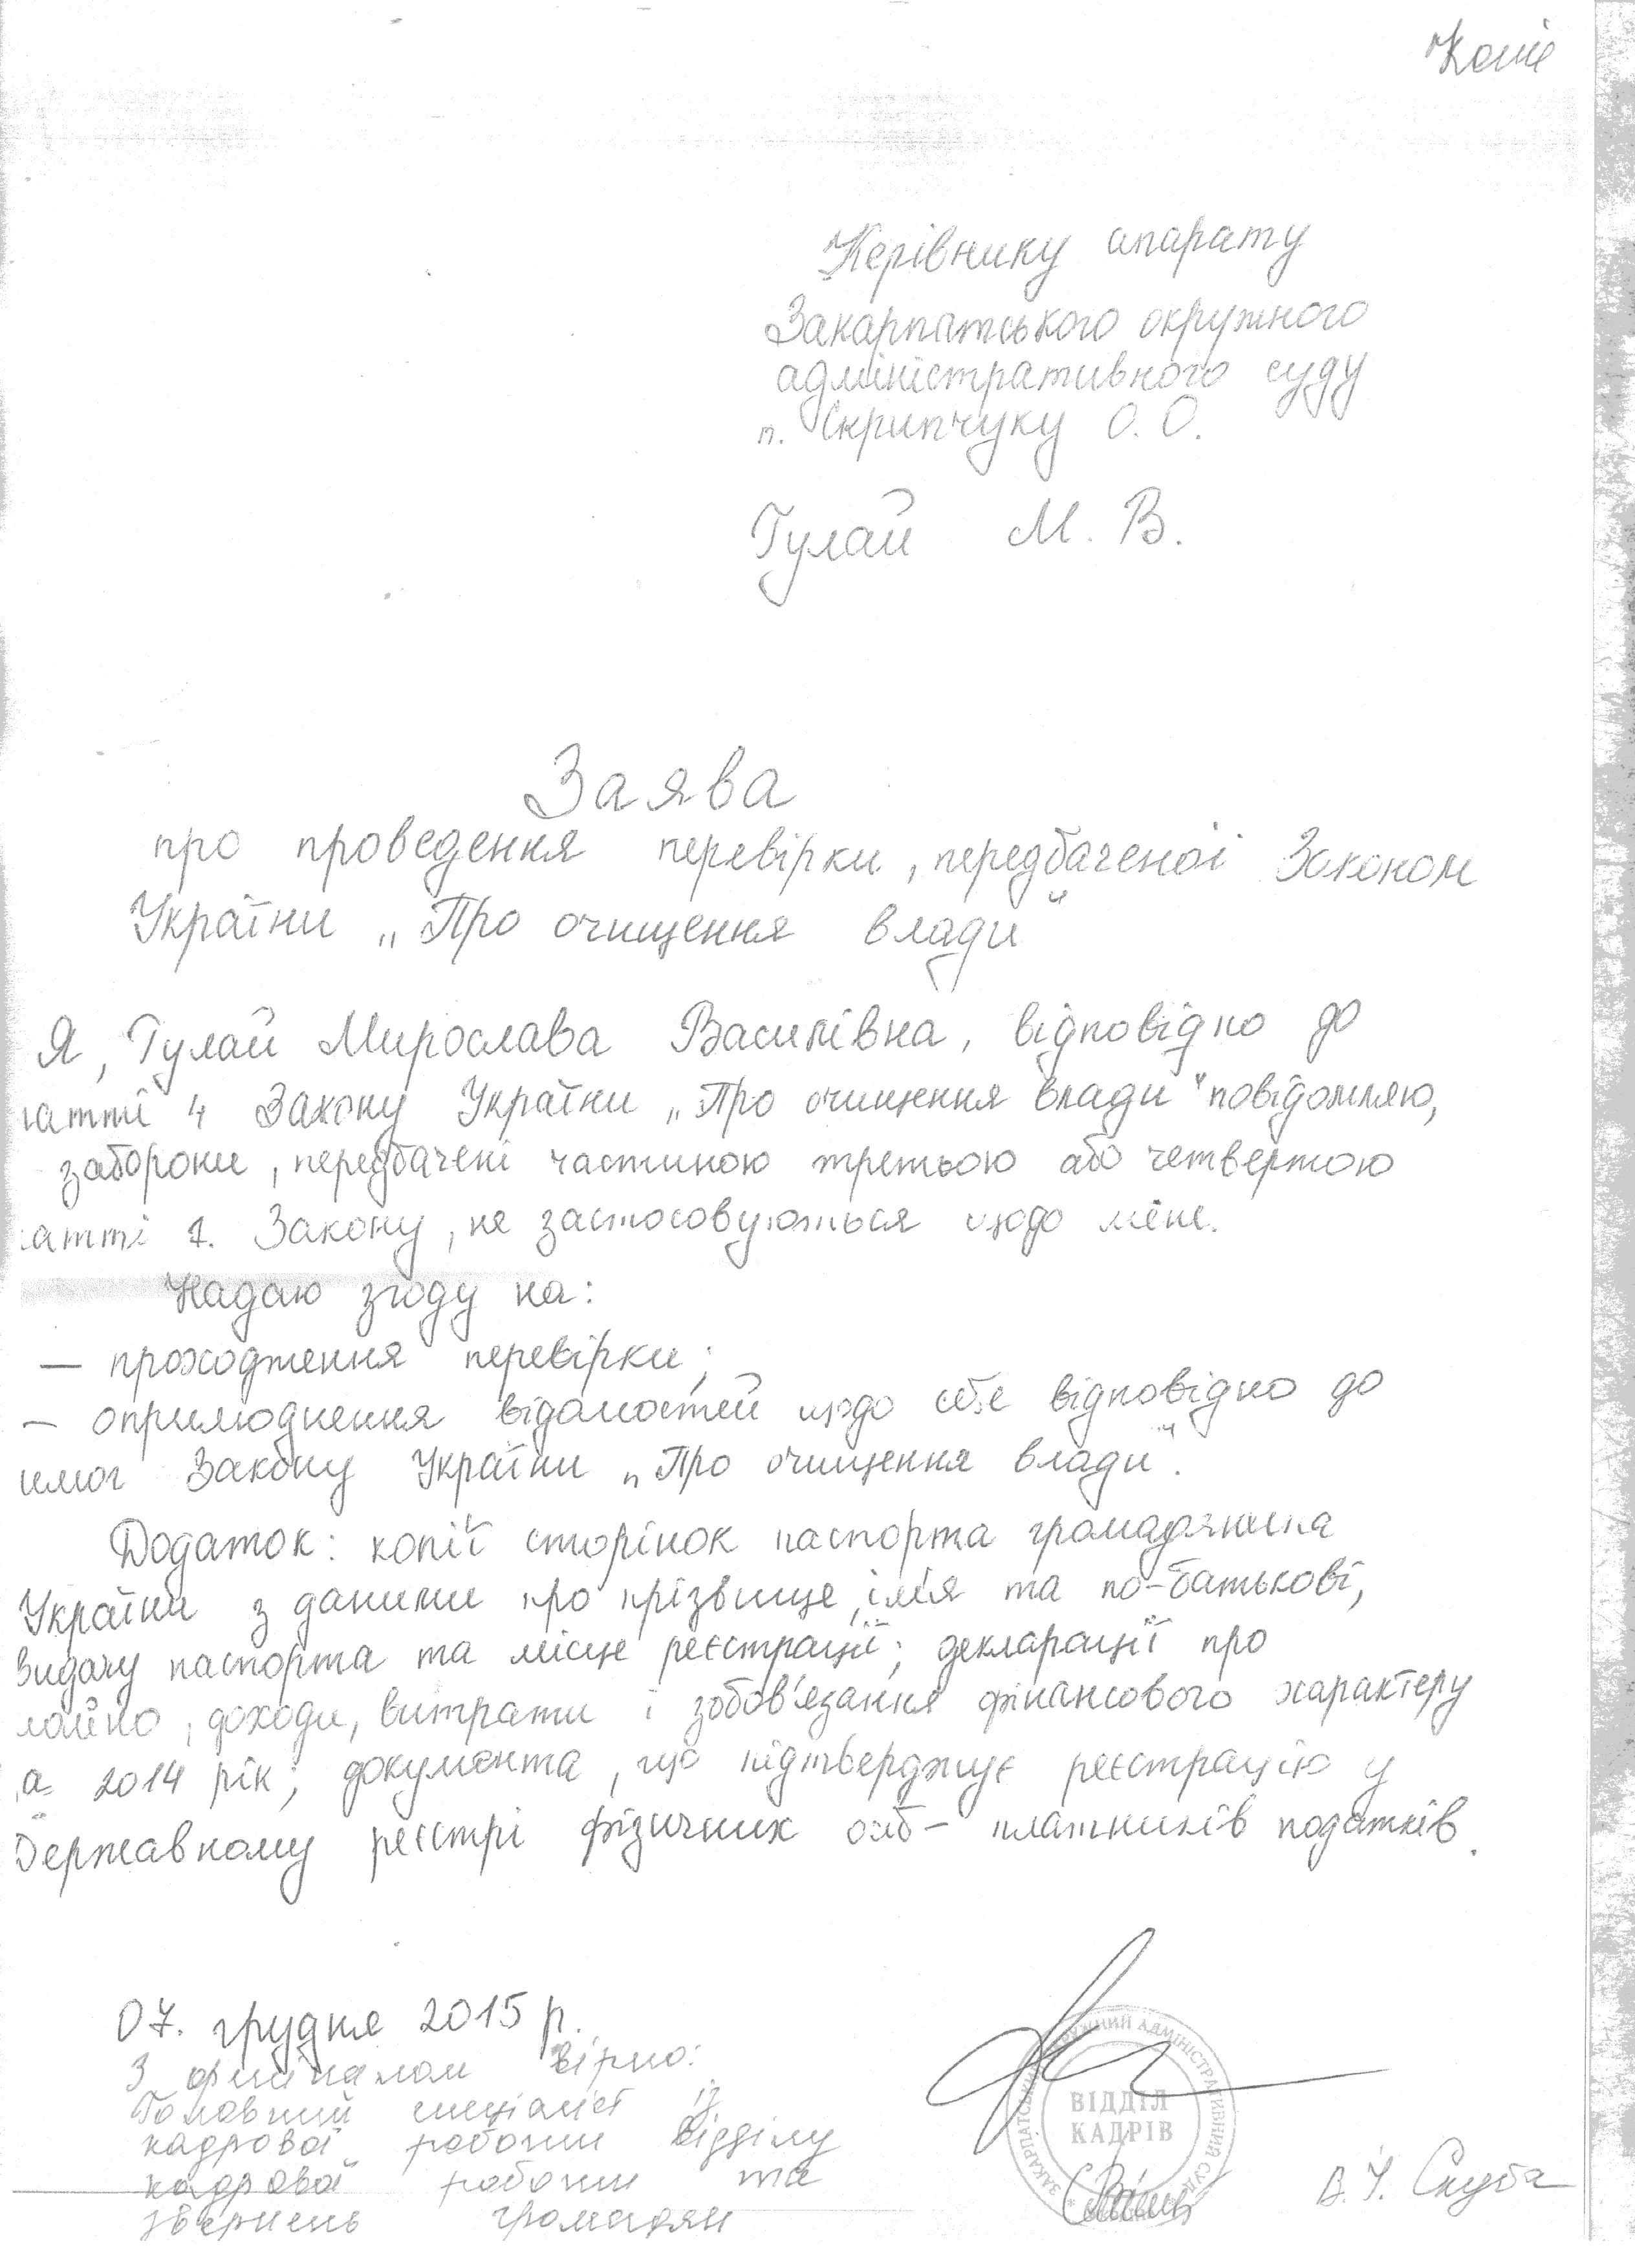 Копія
Керівнику апарату
Закарпатського окружного
адміністративного суду
п. Скрипчуку О. О.
Гулай М. В.
Заява
про проведення перевірки, передбаченої Законом
України „Про очищення влади"
Я, Гулай Мирослава Василівна, відповідно до
татті 4 Закону України „Про очищення влади" повідомляю,
заборони, передбачені частиною третьою або четвертою
татті 1. Закону, не застосовуються щодо мене.
Надаю згоду на:
— проходження перевірки;
— оприлюднення відомостей щодо себе відповідно до
имог Закону України „Про очищення влади".
Додаток: копії сторінок паспорта громадянина
України з даними про прізвище, ім'я та по-батькові,
видачу паспорта та місце реєстрації; декларації про
майно, доходи, витрати і зобов'язання фінансового характеру
а 2014 рік; документа, що підтверджує реєстрацію у
Державному реєстрі фізичних осіб — платників податків.
07. грудня 2015 р.
З оригіналом вірно:
Головний спеціаліст із
кадрової роботи відділу
кадрової роботи та
звернень громадян
ВІДДІЛ
КАДРІВ
В. І. Скуба